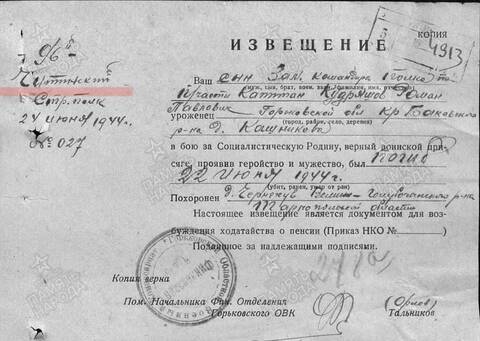 копия
ИЗВЕЩЕНИЕ
4913
96й
Стр. полк
24 июня 1944г.
№ 027
Ваш сын Зам. командира полка по
(муж, сын, брат, воен. зван., фамилия, имя, отчество)
п/части Капитан Кудряшов Роман
Павлович
уроженец Горьковской обл Кр Баковского
(город, район, село, деревня)
р-на д. Кашникова
в бою за Социалистическую Родину, верный воинской при-
сяге, проявив геройство и мужество, был погиб
22 июня 1944г.
(убит, ранен, умер от ран)
Похоронен д.
Тарнопольской области
Настоящее извещение является документом для воз-
буждения ходатайства о пенсии (Приказ НКО №)
Подлинное за надлежащими подписями.
Копия верна
Пом. Начальника Фин. Отделения (Орлов)
Горьковского ОВК Тальников